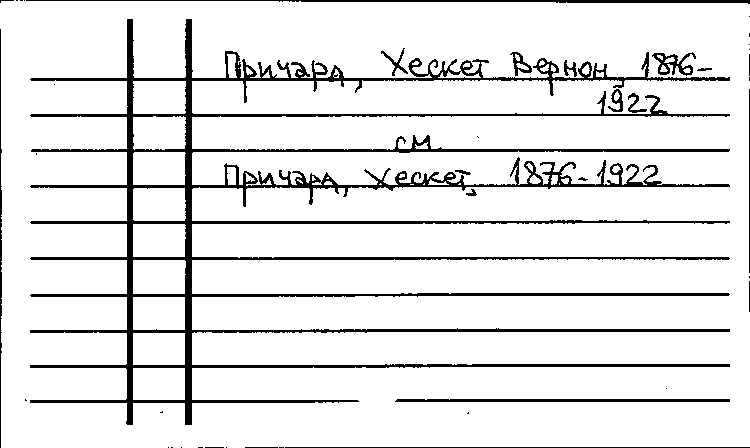 Причард, Хескет Вернон, 1876-
1922
см.
Причард, Хескет, 1876-1922